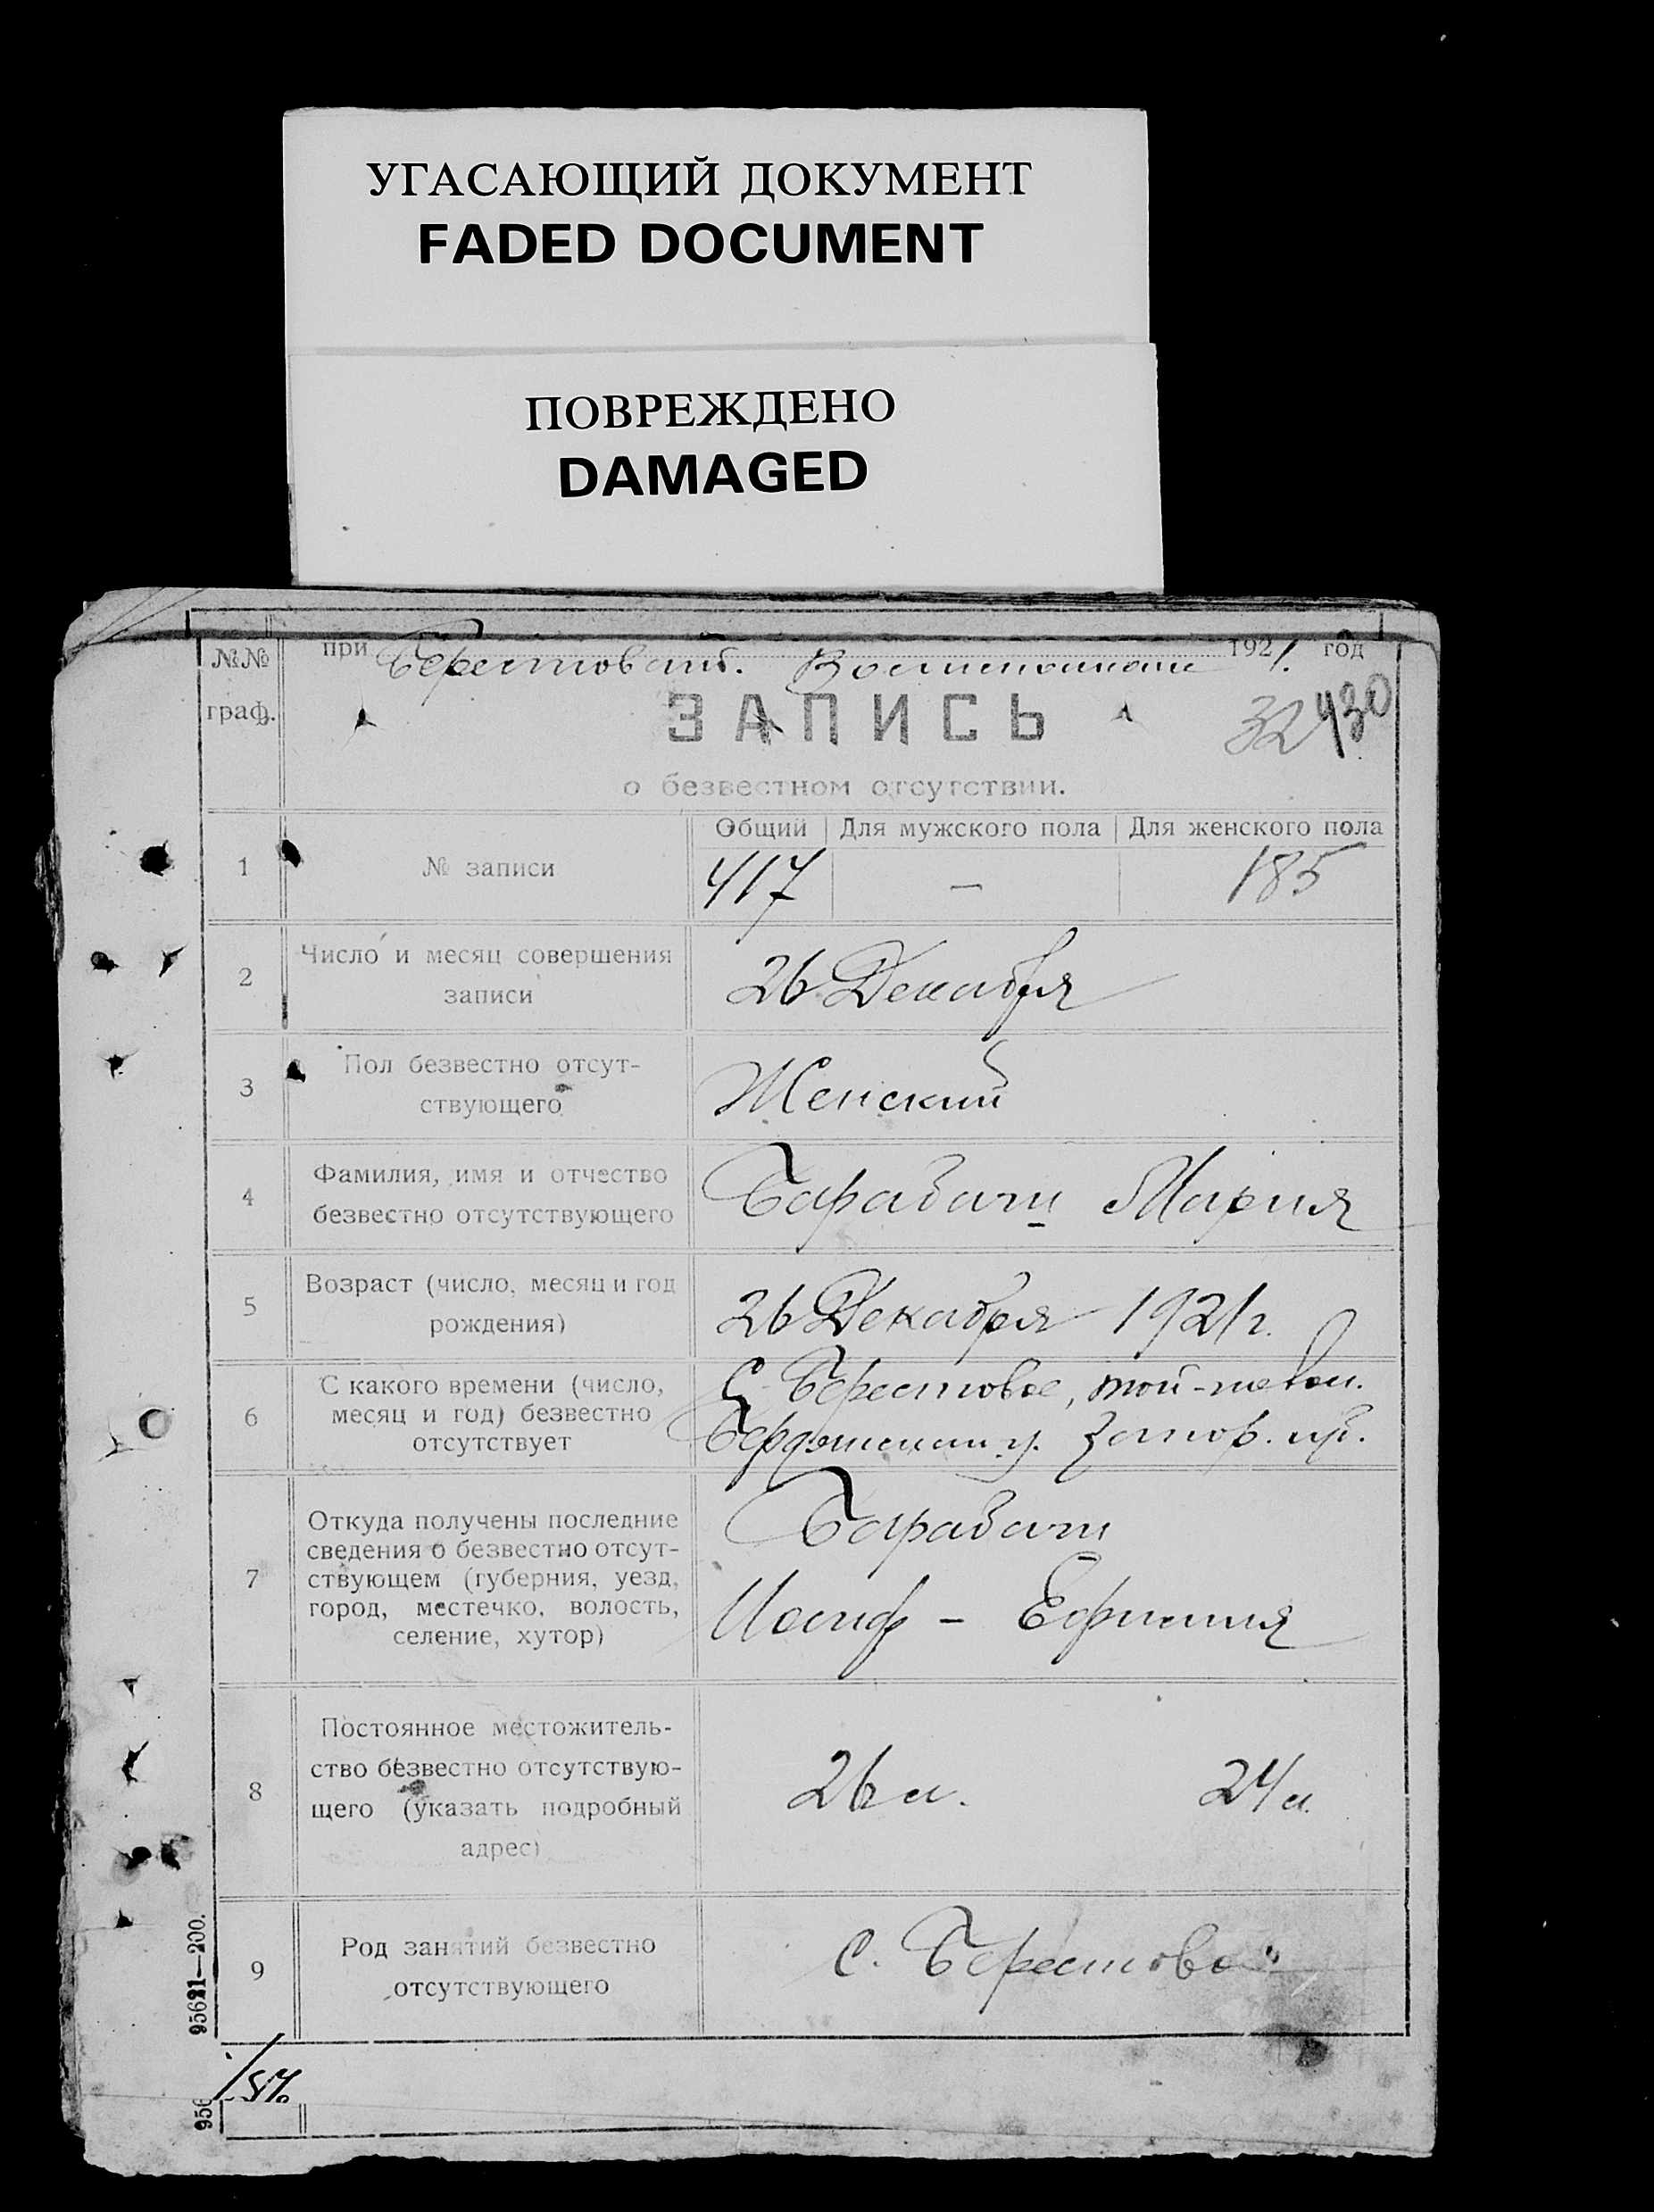 УГАСАЮЩИЙ ДОКУМЕНТ
FADED DOCUMENT
ПОВРЕЖДЕНО
DAMAGED
№№ граф.
при Берестовском. 1921. год
ЗАПИСЬ
32 430
о безвестном отсутствии.
Общий Для мужского пола Для женского пола
1 № записи 417 — 185
2 Число и месяц совершения
записи
26 Декабря
3 Пол безвестно отсут-
ствующего
Женский
4 Фамилия, имя и отчество
безвестно отсутствующего
Барабаш Мария
5 Возраст (число, месяц и год
рождения)
26 Декабря 1921 г.
6 С какого времени (число,
месяц и год) безвестно
отсутствует
С. Берестовое, той-же вол.
Бердянскаи у. Запор. губ.
7 Откуда получены последние
сведения о безвестно отсут-
ствующем (губерния, уезд,
город, местечко, волость,
селение, хутор)
Барабаш
Иосиф - Ефимия
8 Постоянное местожитель-
ство безвестно отсутствую-
щего (указать подробный
адрес)
26 л. 24 л.
9 Род занятий безвестно
отсутствующего
С. Берестовое
95621—200.
956